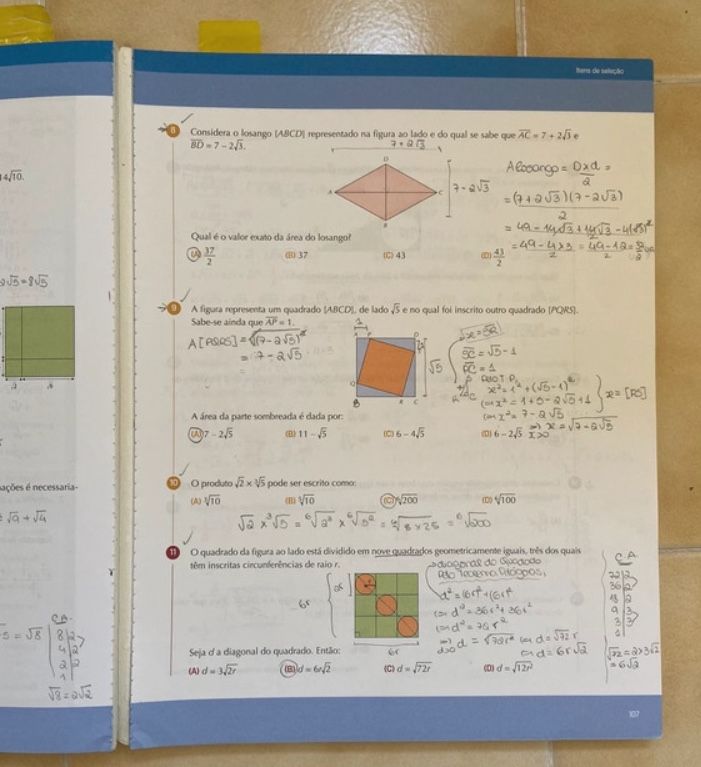 Itens de seleção
4√10.
2√5=8√5
ações é necessaria-
= √9 + √4
C.A.
5 = √8
8|2
4|2
2|2
1
√8 = 2√2
8 Considera o losango [ABCD] representado na figura ao lado e do qual se sabe que AC = 7 + 2√3 e
BD = 7 – 2√3.
7 + 2√3
D
A
C
B
7 - 2√3
A losango = D×d =
2
= (7 + 2√3)(7 - 2√3)
2
= 49 - 14√3 + 14√3 - 4(√3)²
2
= 49 - 4×3 = 49 - 12 = 37
2 2 2
Qual é o valor exato da área do losango?
(A) 37/2
(B) 37
(C) 43
(D) 43/2
9 A figura representa um quadrado [ABCD], de lado √5 e no qual foi inscrito outro quadrado [PQRS].
Sabe-se ainda que AP = 1.
A [PQRS] = √(7 - 2√5)²
= 7 - 2√5
=
1
A P D
Q
B R C
√5
√x = SR
SC = √5 - 1
RC = 1
Pelo T.P.
x² = 1² + (√5 - 1)²
(=) x² = 1 + 5 - 2√5 + 1
(=) x² = 7 - 2√5
=) x = √7 - 2√5
x>0
x = [RS]
A área da parte sombreada é dada por:
(A) 7 – 2√5
(B) 11 – √5
(C) 6 – 4√5
(D) 6 – 2√5
10 O produto √2 × ∛5 pode ser escrito como:
(A) ∛10
(B) ⁶√10
(C) ⁶√200
(D) ⁶√100
√2 × ³√5 = ⁶√2³ × ⁶√5² = ⁶√8 × 25 = ⁶√200
11 O quadrado da figura ao lado está dividido em nove quadrados geometricamente iguais, três dos quais
têm inscritas circunferências de raio r.
6r
2r
r
6r
diagonal do quadrado
Pelo Teorema Pitágoras,
d² = (6r)² + (6r)²
(=) d² = 36r² + 36r²
(=) d² = 72r²
=) d = √72r² (=) d = √72 r
d>0
(=) d = 6r√2
C.A.
72|2
36|2
18|2
9|3
3|3
1|
√72 = 2×3√2
= 6√2
Seja d a diagonal do quadrado. Então:
(A) d = 3√2r
(B) d = 6r√2
(C) d = √72r
(D) d = √12r²
107